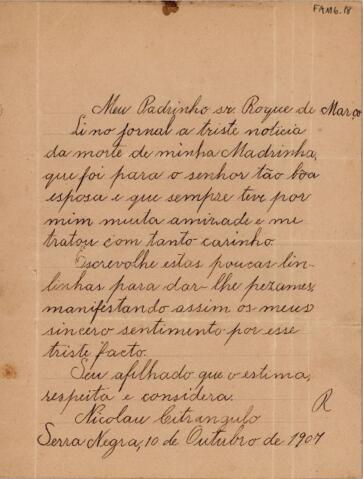 FAMG.18
Meu Padrinho sr. Roque de Março
Li no jornal a triste noticia
da morte de minha Madrinha,
que foi para o senhor tão boa
esposa e que sempre teve por
mim muita amizade e me
tratou com tanto carinho.
Escrevolhe estas poucas lin-
linhas para dar-lhe pezames,
manifestando assim os meus
sincero sentimento por esse
triste facto.
Seu afilhado que o estima,
respeita e considera.
Nicolau Citrangulo
R
Serra Negra, 10 de Outubro de 1907